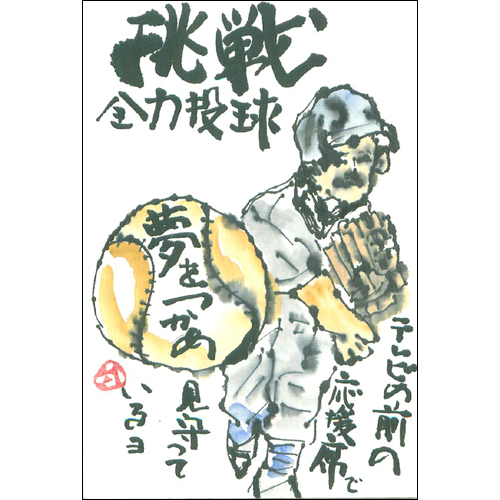 挑戦
全力投球
夢をつかめ
テレビの前の
応援席で
見守って
いるヨ